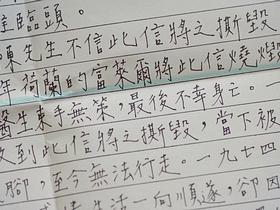 臨頭。
陳先生不信此信將之撕毀
年荷蘭的富萊爾將此信燒燬
醫生束手無策，最後不幸身亡。一
收到此信將之撕毀，當下被
腳，至今無法行走。一九七四
生活一向順遂，卻因